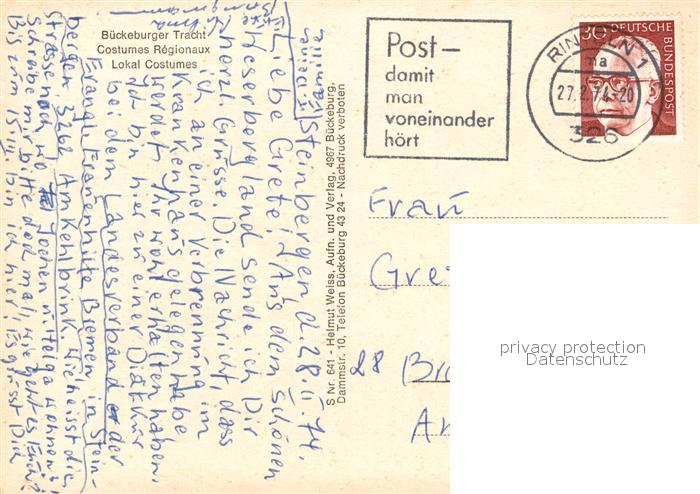 Bückeburger Tracht
Costumes Régionaux
Lokal Costumes
Steinbergen d. 28.II.74.
Liebe Grete! Aus dem schönen
Weserbergland sende ich Dir
herzl. Grüsse. Die Nachricht, dass
ich an einer Verbrennung im
Krankenhaus gelegen habe
werdet Ihr wohl erhalten haben.
Ich bin hier zu einer Diätkur
bei dem Landesverband der
Evangl. Frauenhilfe Bremen in Stein-
bergen, 3261 Am Kehlbrink. Wie heisst die
Strasse noch wo Jochen u. Helga wohnen?
Schreibe mir bitte doch mal, wie geht es Euch?
Bis zum bin ich hier. Es grüsst Dich
S Nr. 641 - Helmut Weiss, Aufn. und Verlag, 4967 Bückeburg,
Dammstr. 10, Telefon Bückeburg 43 24 - Nachdruck verboten
Post-
damit
man
voneinander
hört
RINTELN 1
ma
27.2.74-20
326
30 DEUTSCHE
BUNDESPOST
Frau
Gre
28 Br
privacy protection
Datenschutz